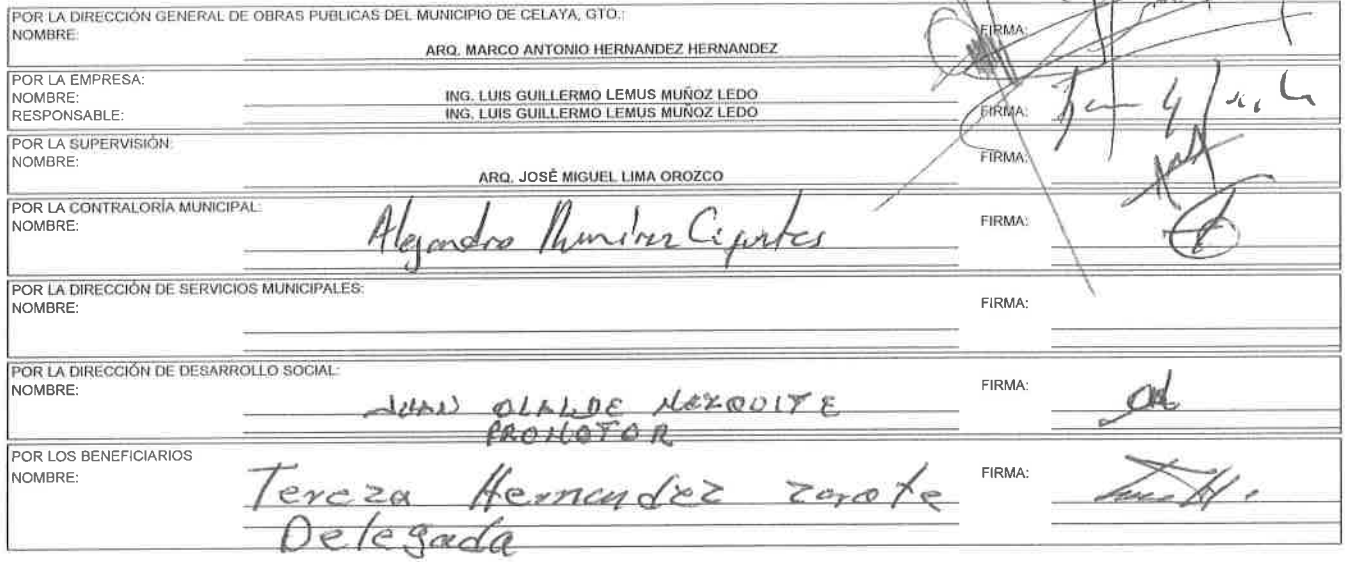 POR LA DIRECCIÓN GENERAL DE OBRAS PUBLICAS DEL MUNICIPIO DE CELAYA, GTO.:
NOMBRE: ARQ. MARCO ANTONIO HERNANDEZ HERNANDEZ FIRMA:
POR LA EMPRESA:
NOMBRE: ING. LUIS GUILLERMO LEMUS MUÑOZ LEDO
RESPONSABLE: ING. LUIS GUILLERMO LEMUS MUÑOZ LEDO FIRMA:
POR LA SUPERVISIÓN:
NOMBRE: ARQ. JOSÉ MIGUEL LIMA OROZCO FIRMA:
POR LA CONTRALORÍA MUNICIPAL:
NOMBRE: Alejandro FIRMA:
POR LA DIRECCIÓN DE SERVICIOS MUNICIPALES:
NOMBRE: FIRMA:
POR LA DIRECCIÓN DE DESARROLLO SOCIAL:
NOMBRE: JUAN OLALDE MEZQUITE FIRMA:
PROMOTOR
POR LOS BENEFICIARIOS
NOMBRE: Tereza Hernandez Zarate FIRMA:
Delegada